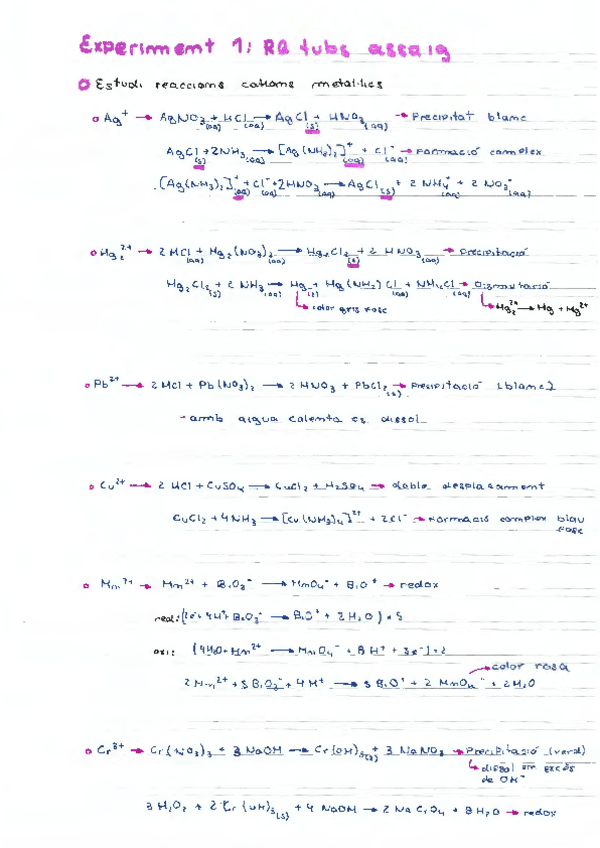 Experiment 1: RQ tubs assaig
Estudi reaccions cations metàl·lics
Ag⁺ → AgNO₃(aq) + HCl(aq) → AgCl(s) + HNO₃(aq) → Precipitat blanc
AgCl(s) + 2NH₃(aq) → [Ag(NH₃)₂]⁺(aq) + Cl⁻(aq) → Formació complex
[Ag(NH₃)₂]⁺(aq) + Cl⁻(aq) + 2HNO₃(aq) → AgCl(s) + 2 NH₄⁺(aq) + 2 NO₃⁻(aq)
Hg₂²⁺ → 2 HCl(aq) + Hg₂(NO₃)₂(aq) → Hg₂Cl₂(s) + 2 HNO₃(aq) → Precipitació
Hg₂Cl₂(s) + 2 NH₃(aq) → Hg(l) + Hg(NH₂)Cl(s) + NH₄Cl(aq) → Dismutació
color gris fosc Hg₂²⁺ → Hg + Hg²⁺
Pb²⁺ → 2 HCl + Pb(NO₃)₂ → 2 HNO₃ + PbCl₂(s) → Precipitació (blanc)
- amb aigua calenta es dissol
Cu²⁺ → 2 HCl + CuSO₄ → CuCl₂ + H₂SO₄ → doble desplaçament
CuCl₂ + 4NH₃ → [Cu(NH₃)₄]²⁺ + 2Cl⁻ → Formació complex blau
fosc
Mn²⁺ → Mn²⁺ + BiO₃⁻ → MnO₄⁻ + BiO⁺ → redox
red: (2e⁻ + 4H⁺ + BiO₃⁻ → BiO⁺ + 2H₂O) × 5
oxi: (4H₂O + Mn²⁺ → MnO₄⁻ + 8H⁺ + 5e⁻) × 2
color rosa
2 Mn²⁺ + 5 BiO₃⁻ + 4 H⁺ → 5 BiO⁺ + 2 MnO₄⁻ + 2H₂O
Cr³⁺ → Cr(NO₃)₃ + 3 NaOH → Cr(OH)₃(s) + 3 NaNO₃ → Precipitació (verd)
dissol en excés
de OH⁻
3 H₂O₂ + 2 Cr(OH)₃(s) + 4 NaOH → 2 Na CrO₄ + 8H₂O → redox